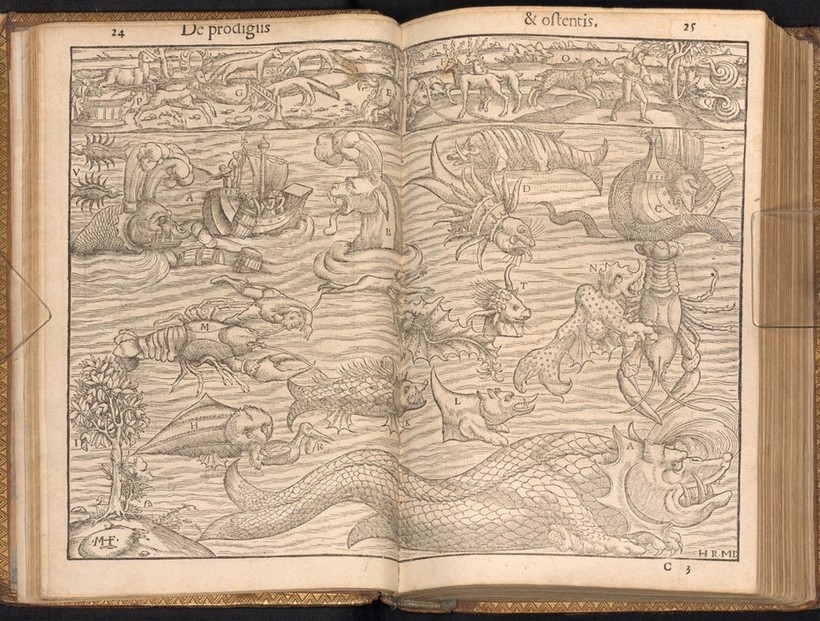 24 De prodigiis
& ostentis. 25
P
G
E
O
V
A
B
D
C
M
T
N
H
R
K
L
I
A
·MF·
HRMD
C 3